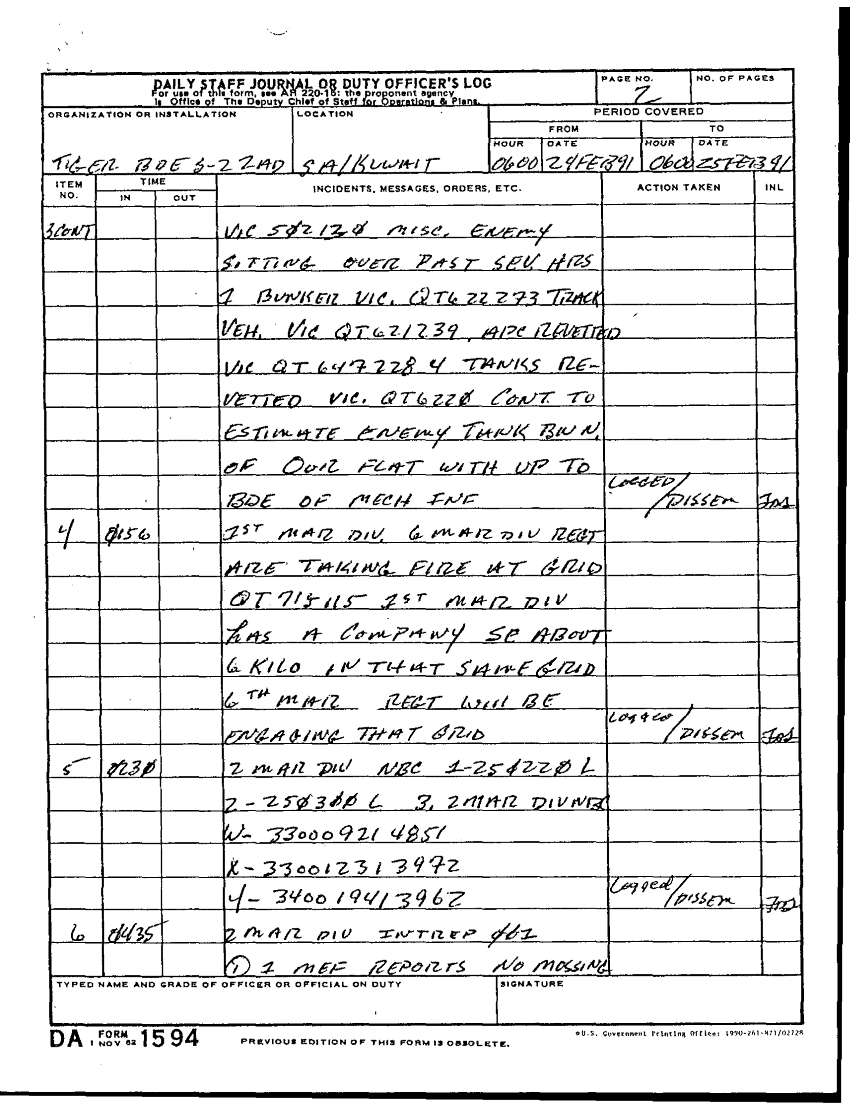 DAILY STAFF JOURNAL OR DUTY OFFICER'S LOG
For use of this form, see AR 220-15; the proponent agency
is Office of The Deputy Chief of Staff for Operations & Plans.
PAGE NO.
2
NO. OF PAGES
ORGANIZATION OR INSTALLATION
TIGER BDE S-2 2AD
LOCATION
SA/KUWAIT
PERIOD COVERED
FROM
TO
HOUR DATE HOUR DATE
0600 24FEB91 0600 25FEB91
ITEM NO.
TIME
IN OUT
INCIDENTS, MESSAGES, ORDERS, ETC.
ACTION TAKEN
INL
3CONT VIC 5Ø2120 MISC. ENEMY
SITTING OVER PAST SEV. HRS
1 BUNKER VIC. QT622273 TRACK
VEH. VIC QT621239, APC REVETTED
VIC QT647228 4 TANKS RE-
VETTED VIC. QT622Ø CONT. TO
ESTIMATE ENEMY TANK
OF OUR FLAT WITH UP TO
BDE OF MECH INF LOGGED/DISSEM
4 Ø156 1ST MAR DIV. 6 MAR DIV REGT
ARE TAKING FIRE AT GRID
QT 715115 1ST MAR DIV
HAS A COMPANY SP ABOUT
6 KILO IN THAT SAME GRID
6TH MAR REGT WILL BE
ENGAGING THAT GRID Logged/DISSEM
5 Ø23Ø 2 MAR DIV NBC 1-25Ø22Ø L
2-25Ø3ØØ L 3. 2MAR DIV NBC
W- 330009214851
X- 330012313972
Y- 340019413962 Logged/DISSEM
6 Ø435 2 MAR DIV INTREP Ø61
① 1 MEF REPORTS NO MOSSING
TYPED NAME AND GRADE OF OFFICER OR OFFICIAL ON DUTY
SIGNATURE
DA FORM 1 NOV 62 1594
PREVIOUS EDITION OF THIS FORM IS OBSOLETE.
*U.S. Government Printing Office: 1990-261-871/02728